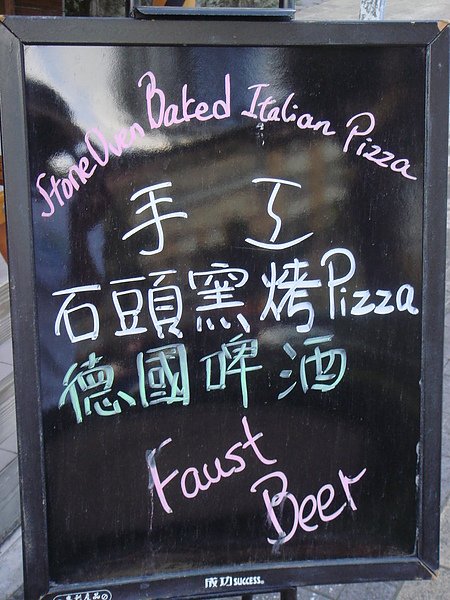 Stone Oven Baked Italian Pizza
手工
石頭窯烤Pizza
德國啤酒
Faust
Beer
成功 SUCCESS